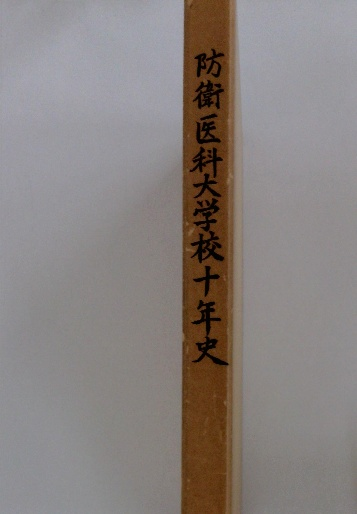 防衛医科大学校十年史